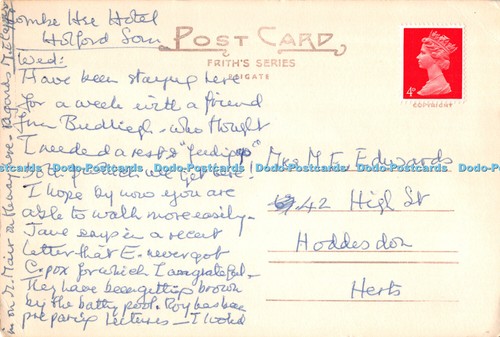 Combe Hse Hotel
Holford Som
Wed:
Have been staying here
for a week with a friend
from Budleigh - who thought
I needed a rest &
so
I hope by now you are
able to walk more easily -
Jane says in a recent
letter that E. never got
C. pox for which I am grateful -
They have been getting brown
by the bathg pool. Roy has been
preparing lectures - I
POST CARD
FRITH'S SERIES
REIGATE
4D
COPYRIGHT
Mrs M. E. Edwards
42 High St
Hoddesdon
Herts
Dodo-Postcards Dodo-Postcards Dodo-Postcards Dodo-Postcards Dodo-Postcards Dodo-Postcards